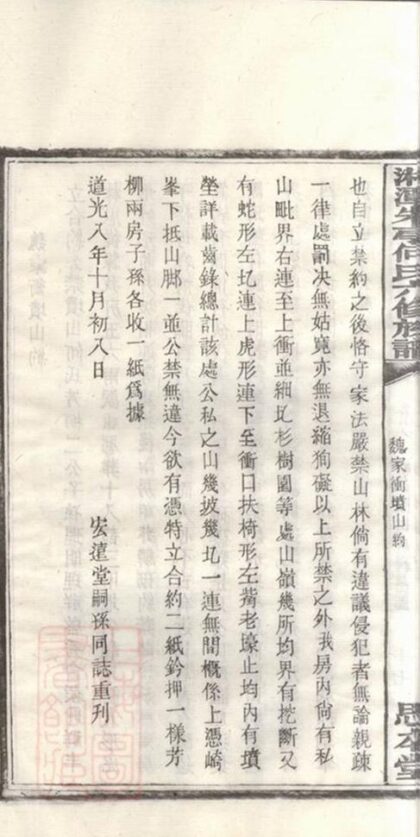 湘潭
何氏六修族譜
魏家衝墳山約
思本堂
也自立禁約之後恪守家法嚴禁山林倘有違議侵犯者無論親疎
一律處罰決無姑寬亦無退縮徇礙以上所禁之外我房內倘有私
山毗界右連至上衝並細圠杉樹園等處山嶺幾所均界有挖斷又
有蛇形左圠連上虎形連下至衝口扶椅形左觜老壕止均內有墳
塋詳載齒錄總計該處公私之山幾披幾圠一連無間概係上憑崎
峯下抵山腳一並公禁無違今欲有憑特立合約二紙鈐押一樣芳
柳兩房子孫各收一紙爲據
道光八年十月初八日
安遠堂嗣孫同誌重刊